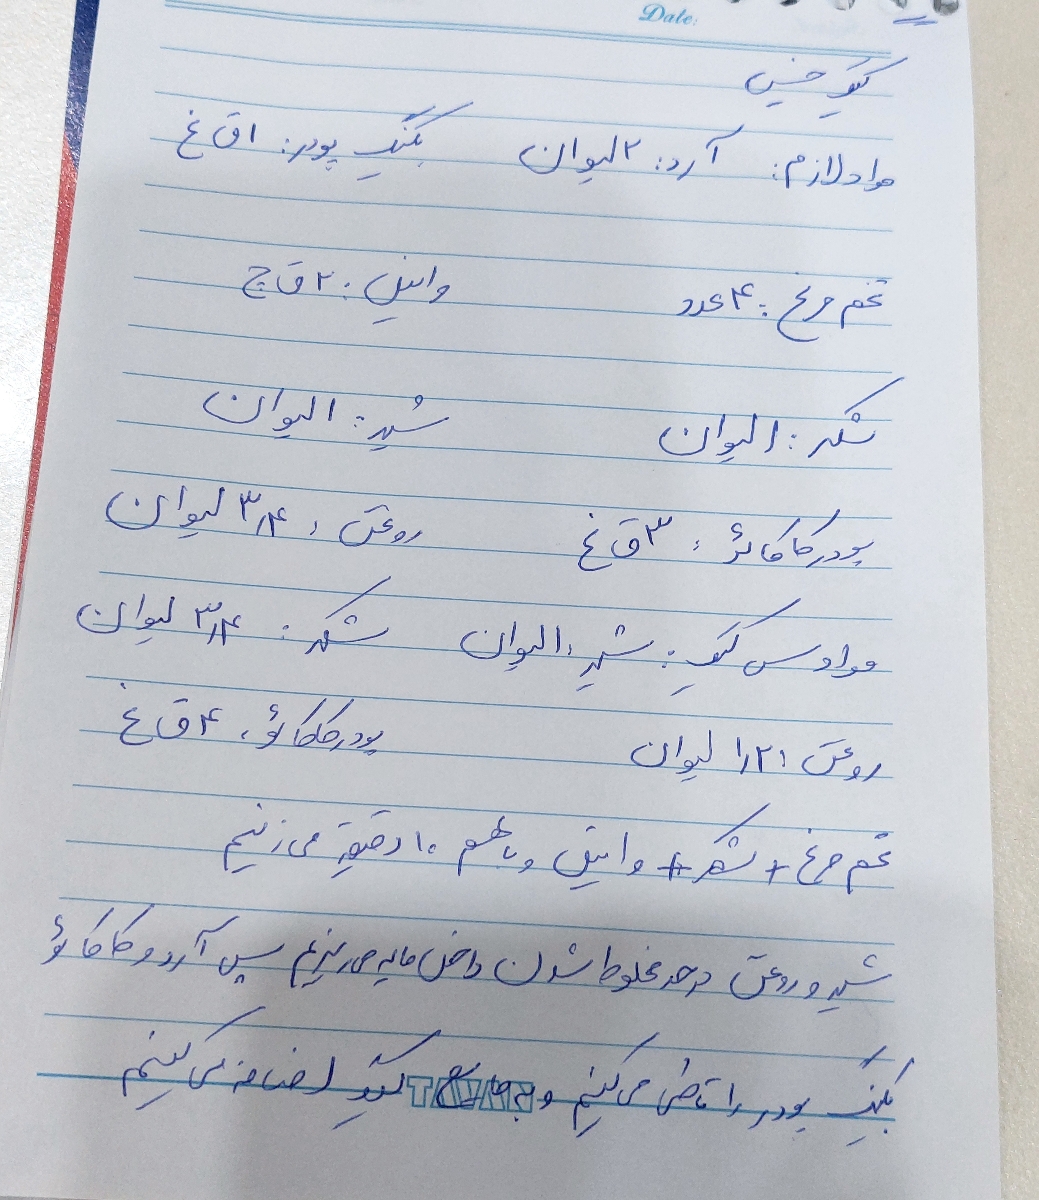 Date:
کیک خیس
مواد لازم: آرد: ۲ لیوان بکینگ پودر: ۱ ق غ
تخم مرغ: ۴ عدد وانیل: ۲ ق چ
شکر: ۱ لیوان شیر: ۱ لیوان
پودر کاکائو: ۳ ق غ روغن: ۳/۴ لیوان
مواد سس کیک: شیر: ۱ لیوان شکر: ۳/۴ لیوان
روغن: ۱/۲ لیوان پودر کاکائو: ۴ ق غ
تخم مرغ + شکر + وانیل و با هم ۱۰ دقیقه می زنیم
شیر و روغن در حد مخلوط شدن داخل مایه می ریزیم سپس آرد و کاکائو
بکینگ پودر را قاطی می کنیم و به مایع کیک اضافه می کنیم